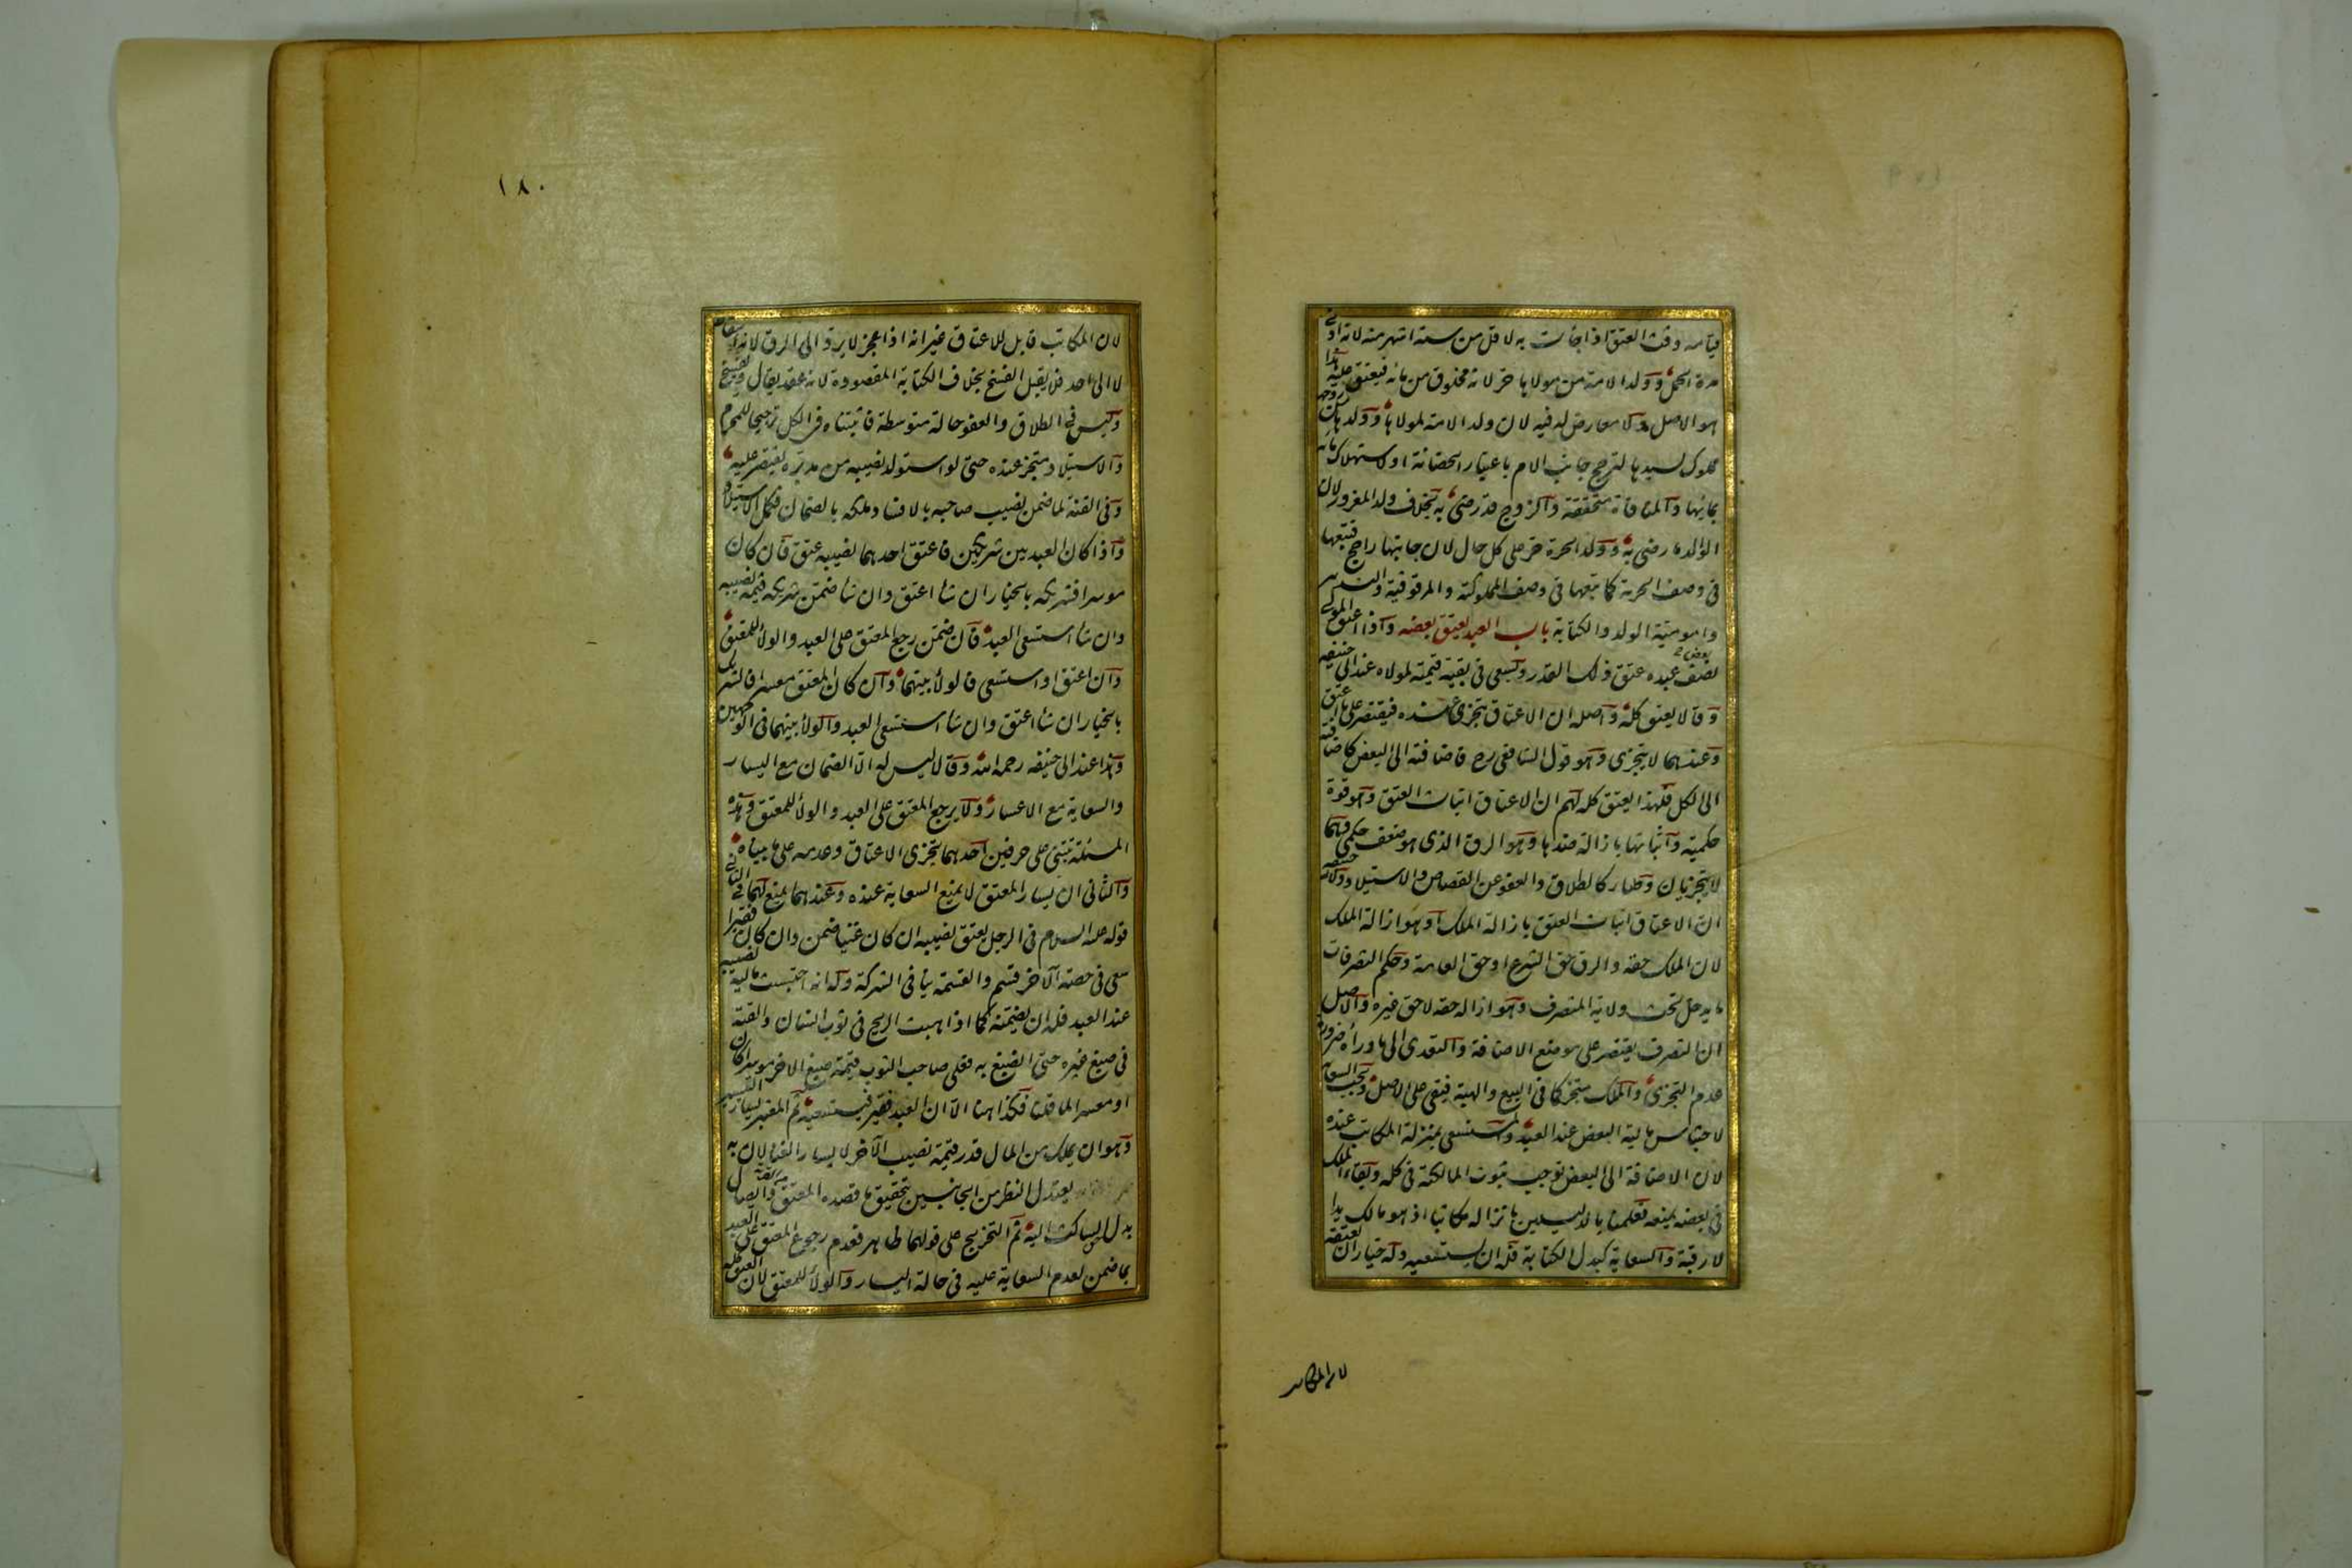 قيامه وقت العتق اذا جاءت به لاقل من ستة اشهر منه لانه ادنى
مدة الحمل وولد الامة من مولاها حر لانه مخلوق من مائه فيعتق عليه هذا
هو الاصل ولا معارض له فيه لان ولد الامة لمولاها وولدها من زوجها
مملوك لسيدها لترجح جانب الام باعتبار الحضانة او لاستهلاك مائه
بمائها والمنافاة متحققة والزوج قد رضى به بخلاف ولد المغرور لان
الوالد ما رضى به وولد الحرة حر على كل حال لان جانبها راجح فيتبعها
فى وصف الحرية كما يتبعها فى وصف المملوكية والمرقوقية والتدبير
وامومية الولد والكتابة باب العبد يعتق بعضه واذا اعتق المولى
بعض
عبده عتق ذلك القدر ويسعى فى بقية قيمته لمولاه عند ابى حنيفه
وقالا يعتق كله واصله ان الاعتاق يتجزى عنده فيقتصر على ما اعتق
وعندهما لا يتجزى وهو قول الشافعى رح فاضافته الى البعض كاضافته
الى الكل فلهذا يعتق كله لهم ان الاعتاق اثبات العتق وهو قوة
حكمية واثباتها بازالة ضدها وهو الرق الذى هو ضعف حكمى وهما
لا يتجزيان وصار كالطلاق والعفو عن القصاص والاستيلاد ولابى حنيفه
ان الاعتاق اثبات العتق بازالة الملك او هو ازالة الملك
لان الملك حقه والرق حق الشرع او حق العامة وحكم التصرفات
ما يدخل تحت ولاية المتصرف وهو ازالة حقه لا حق غيره والاصل
ان التصرف يقتصر على موضع الاضافة والتعدى الى ما وراءه ضرورة
عدم التجزى والملك متجز كما فى البيع والهبة فيبقى على الاصل ويجب السعاية
لاحتباس مالية البعض عند العبد والمستسعى بمنزلة المكاتب عنده
لان الاضافة الى البعض توجب ثبوت المالكية فى كله وبقاء الملك
فى بعضه يمنعه فعلمنا بالدليلين بانزاله مكاتبا اذ هو مالك يدا
لا رقبة والسعاية كبدل الكتابة فله ان يستسعيه وله خيار ان يعتقه
لان المكاتب
١٨٠
لان المكاتب قابل للاعتاق غير انه اذا عجز لا يرد الى الرق لانه اسقاط
لا الى احد فلا يقبل الفسخ بخلاف الكتابة المقصودة لانه عقد يقال ويفسخ
وليس فى الطلاق والعفو حالة متوسطة فاثبتناه فى الكل ترجيحا للمحرم
والاستيلاد متجز عنده حتى لو استولد نصيبه من مدبره يقتصر عليه
وفى القنة لما ضمن نصيب صاحبه بالافساد ملكه بالضمان فكمل الاستيلاد
واذا كان العبد بين شريكين فاعتق احدهما نصيبه عتق فان كان
موسرا فشريكه بالخيار ان شا اعتق وان شا ضمن شريكه قيمة نصيبه
وان شا استسعى العبد فان ضمن رجع المعتق على العبد والولا للمعتق
وان اعتق او استسعى فالولا بينهما وان كان المعتق معسرا فالشريك
بالخيار ان شا اعتق وان شا استسعى العبد والولا بينهما فى الوجهين
وهذا عند ابى حنيفه رحمه الله وقالا ليس له الا الضمان مع اليسار
والسعاية مع الاعسار ولا يرجع المعتق على العبد والولا للمعتق وهذه
المسئلة تبتنى على حرفين احدهما تجزى الاعتاق وعدمه على ما بيناه
والثانى ان يسار المعتق لا يمنع السعاية عنده وعندهما يمنع لهما فى الثانى
قوله عليه السلام فى الرجل يعتق نصيبه ان كان غنيا ضمن وان كان فقيرا
سعى فى حصة الآخر قسم والقسمة ينافى الشركة وله انه احتبست مالية نصيبه
عند العبد فله ان يضمنه كما اذا هبت الريح فى ثوب انسان والقته
فى صبغ غيره حتى انصبغ به فعلى صاحب الثوب قيمة صبغ الاخر موسرا كان
او معسرا لما قلنا فكذا هنا الا ان العبد فقير فيستسعيه ثم المعتبر يسار التيسير
وهو ان يملك من المال قدر قيمة نصيب الآخر لا يسار الغنا لان به
يعتدل النظر من الجانبين بتحقيق ما قصده المعتق من القربة وايصال
بدل الساكت اليه ثم التخريج على قولهما ظاهر فعدم رجوع المعتق على العبد
بما ضمن لعدم السعاية عليه فى حالة اليسار والولا للمعتق لان العتق كله